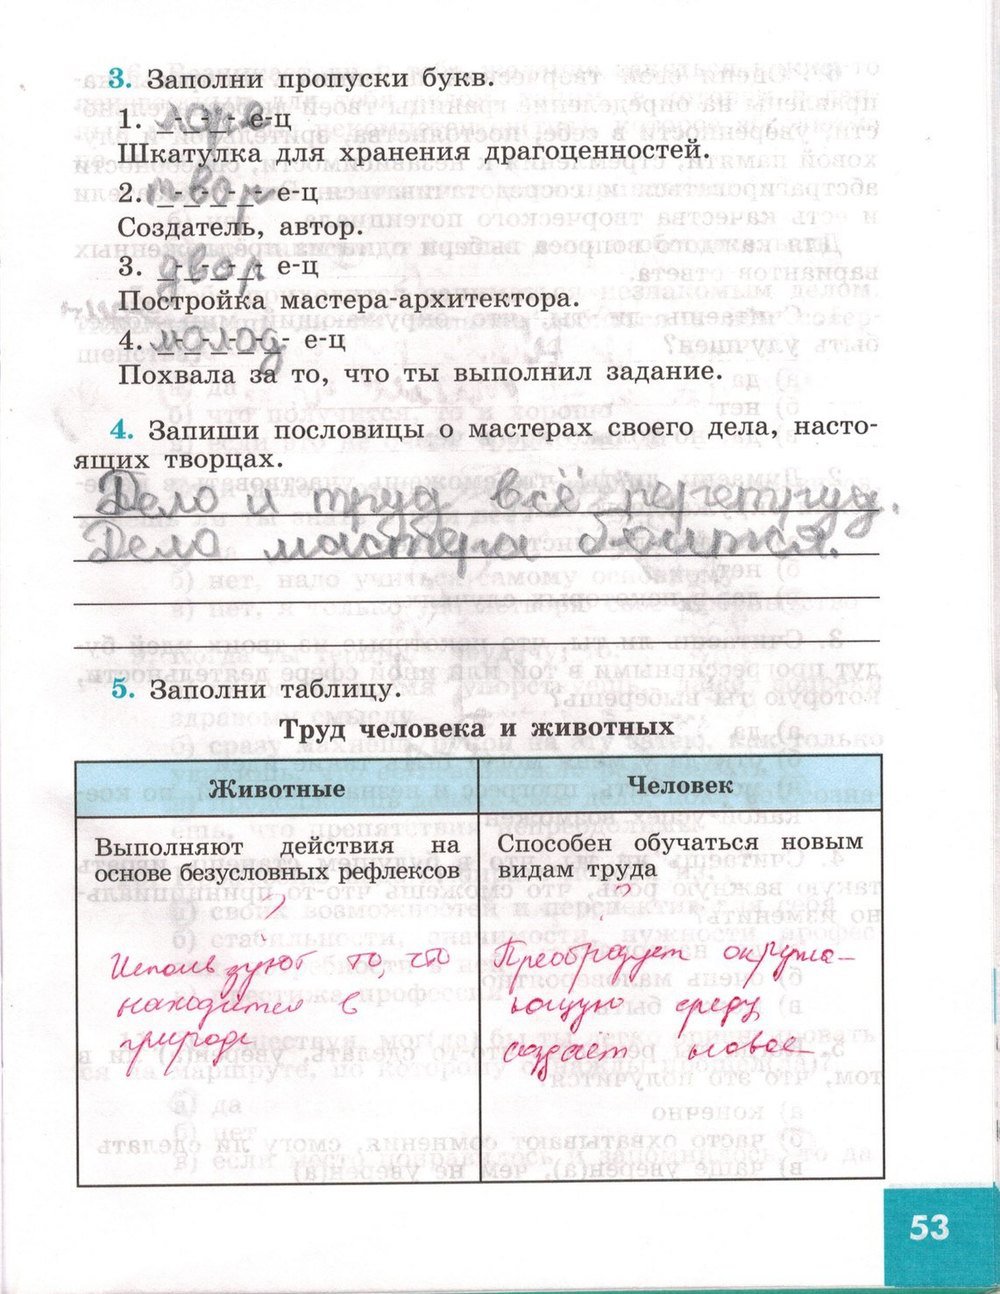 3. Заполни пропуски букв.
1. ларе-ц
Шкатулка для хранения драгоценностей.
2. твор е-ц
Создатель, автор.
3. двор е-ц
Постройка мастера-архитектора.
4. молод е-ц
Похвала за то, что ты выполнил задание.
4. Запиши пословицы о мастерах своего дела, насто-
ящих творцах.
Дело и труд всё перетрут.
Дело мастера боится.
5. Заполни таблицу.
Труд человека и животных
Животные Человек
Выполняют действия на
основе безусловных рефлексов
Способен обучаться новым
видам труда
Используют то, что
находится в
природе
Преобразует окружа-
ющую среду
создаёт новое
53